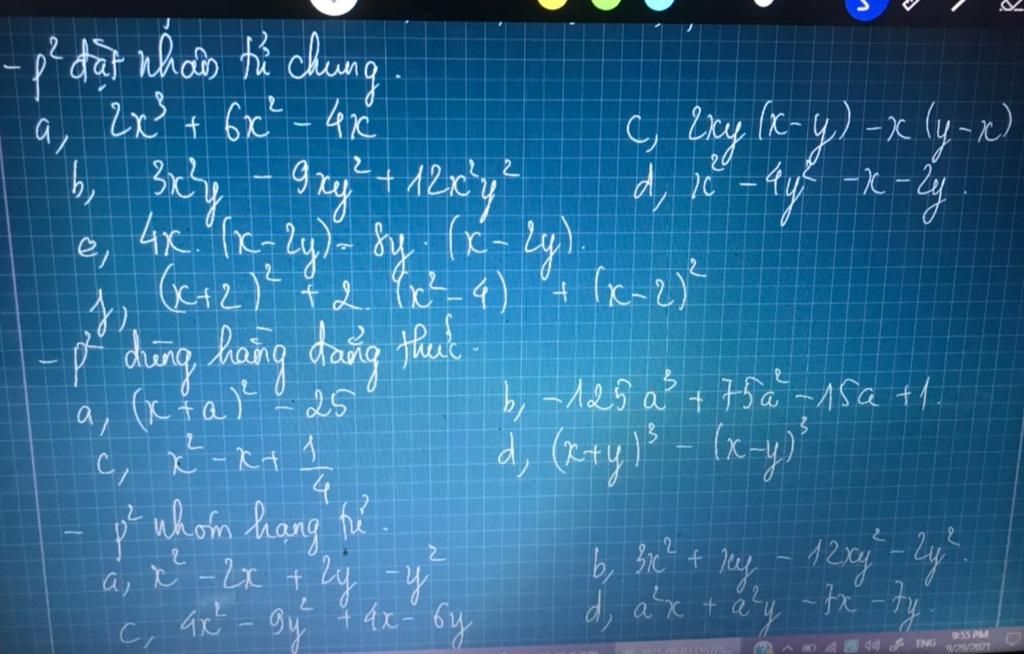 - p² đặt nhân tử chung.
a, 2x³ + 6x² - 4x
c, 2xy (x-y) -x (y-x)
b, 3x²y - 9xy² + 12x²y²
d, x² - 4y² -x - 2y.
e, 4x. (x-2y) - 8y. (x-2y).
f, (x+2)² + 2 (x²-4) + (x-2)²
- p² dùng hằng đẳng thức.
a, (x+a)² - 25
b, -125a³ + 75a² -15a +1.
c, x² -x + 1/4
d, (x+y)³ - (x-y)³
- p² nhóm hạng tử.
a, x² -2x + 2y -y²
b, 3x² + xy - 12xy² - 2y².
c, 4x² - 9y² + 4x - 6y
d, a²x + a²y -7x -7y.
ENG
9:55 PM
9/29/2021